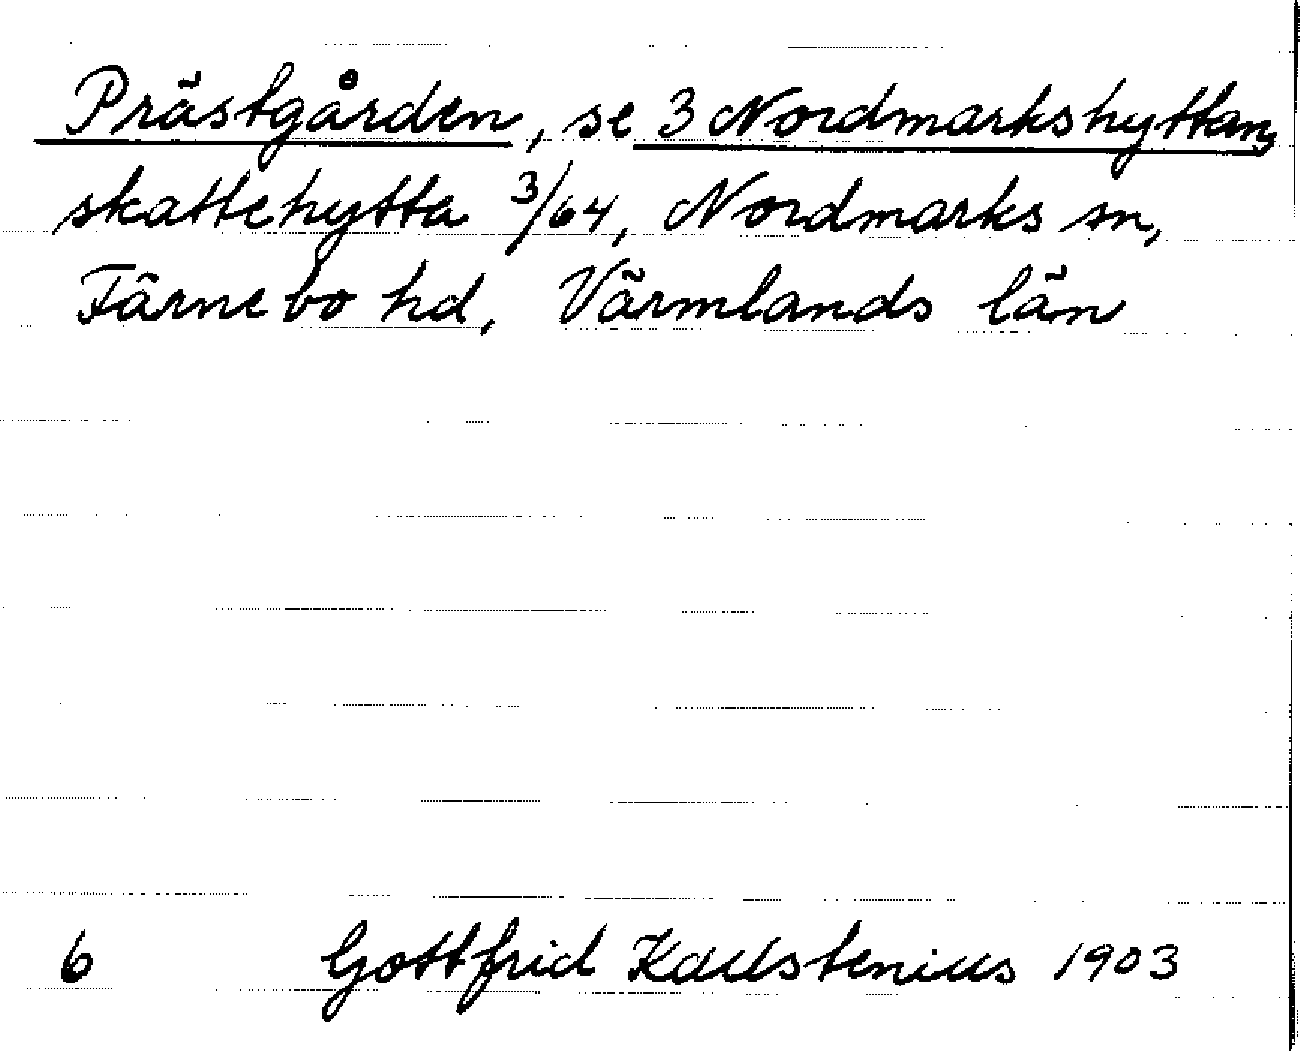 Prästgården, se 3 Nordmarkshyttan,
skattehytta 3/64, Nordmarks sn,
Färnebo hd, Värmlands län
6 Gottfrid Kallstenius 1903